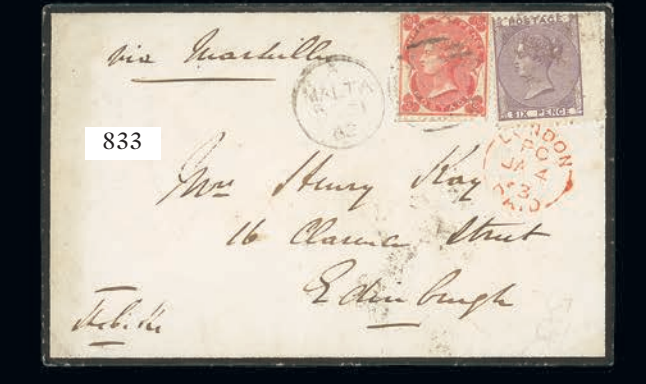 via Marseilles
MALTA
62
POSTAGE
SIX PENCE
LONDON
JA 4
PAID
833
Mrs Henry Kay
16 Clarence Street
Edinburgh